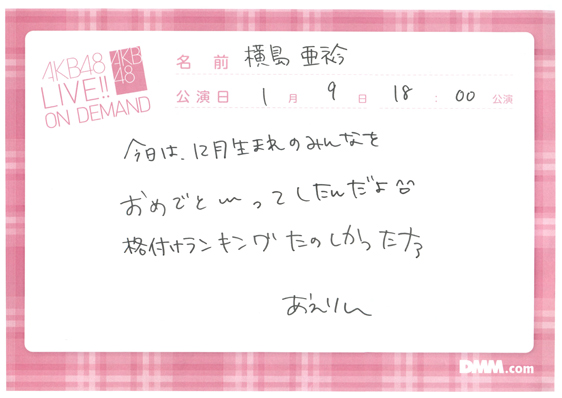 AKB48
LIVE!!
ON DEMAND
AKB
48
名 前 横島 亜衿
公演日 1月 9日 18:00 公演
今日は、12月生まれのみんなを
おめでと〜ってしたんだよ^^
格付けランキングたのしかったな
あえりん
DMM.com